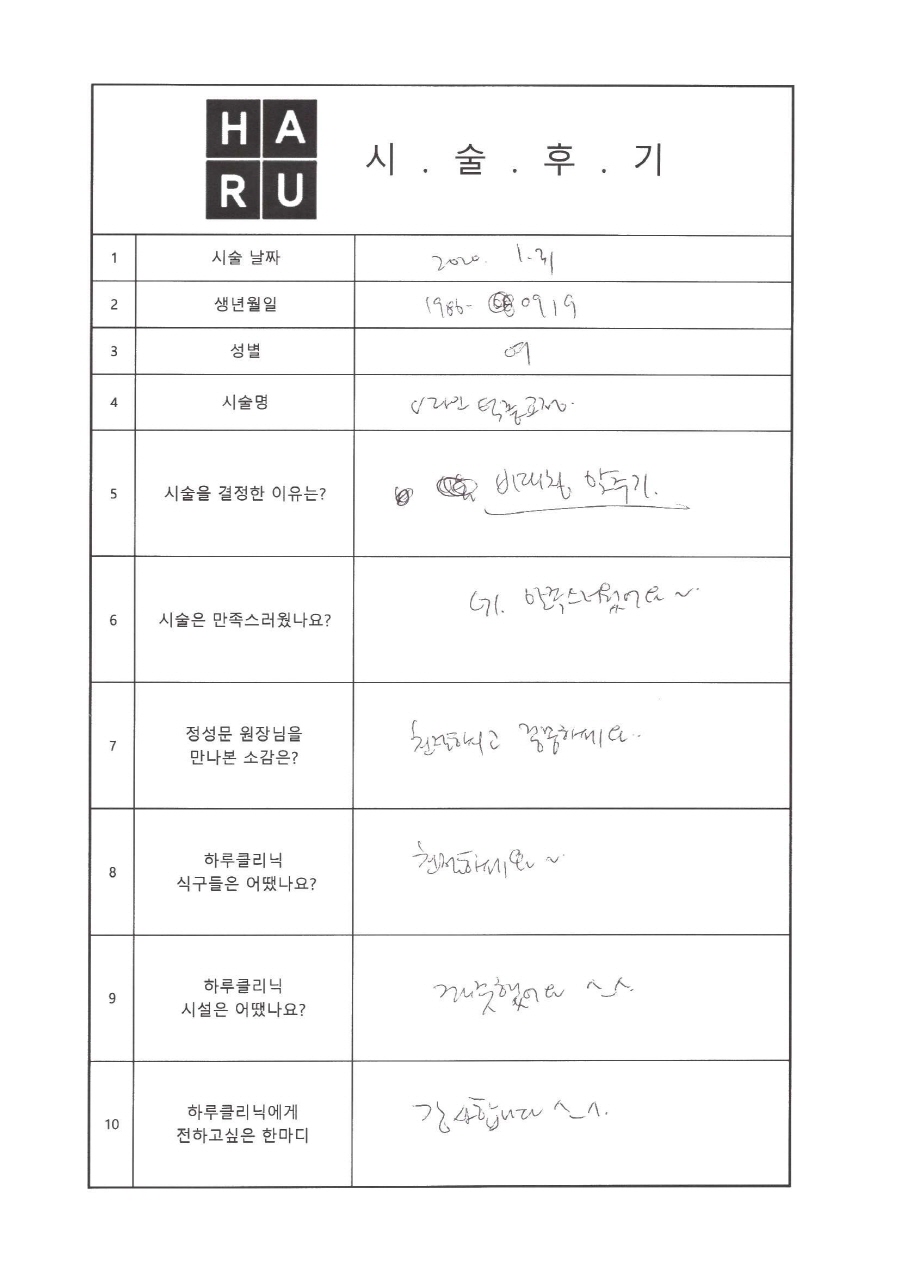 HA
RU
시.술.후.기
1 시술 날짜 2020. 1.31
2 생년월일 1986- 0919
3 성별 여
4 시술명 V라인
5 시술을 결정한 이유는? 비대칭 맞추기.
6 시술은 만족스러웠나요? 네. 만족스러웠어요~
7 정성문 원장님을
만나본 소감은? 친절하시고 꼼꼼하세요..
8 하루클리닉
식구들은 어땠나요? 친절하세요~
9 하루클리닉
시설은 어땠나요? 깨끗했어요 ^_^.
10 하루클리닉에게
전하고싶은 한마디 감사합니다 ^_^.